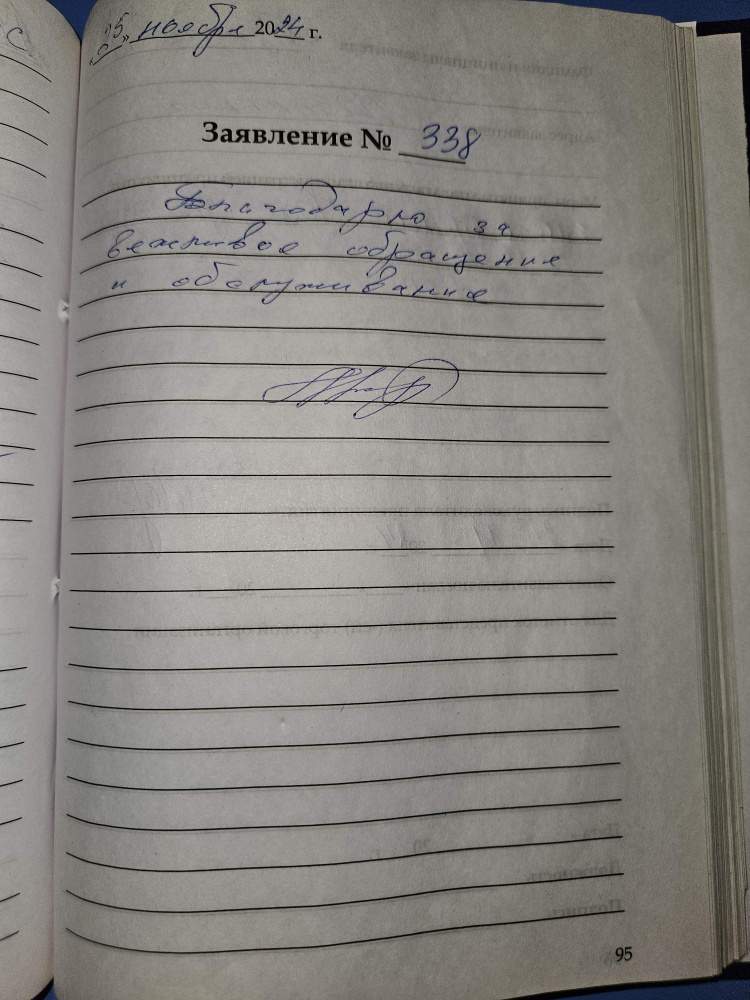 «25» ноября 2024 г.
Заявление № 338
Благодарю за
вежливое обращение
и обслуживание
95